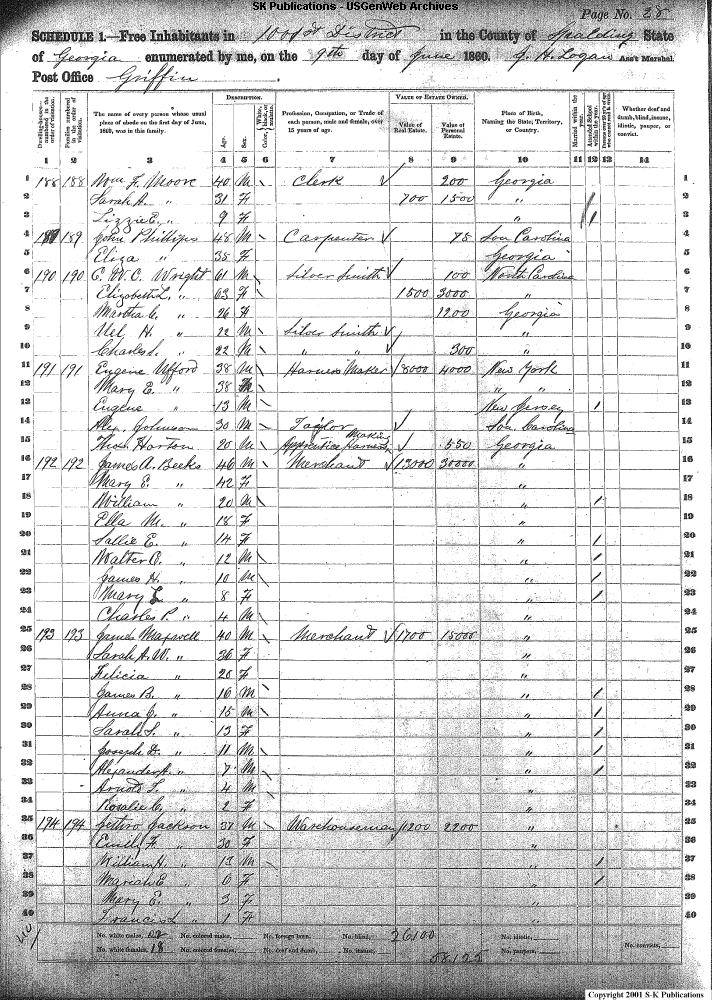 SK Publications - USGenWeb Archives
Page No. 25
SCHEDULE 1.—Free Inhabitants in 1001st District in the County of Spalding State
of Georgia enumerated by me, on the 9th day of June 1860. J. H. Logan Ass't Marshal.
Post Office Griffin
DESCRIPTION. VALUE OF ESTATE OWNED.
Dwelling-houses—numbered in the order of visitation. Families numbered in the order of visitation. The name of every person whose usual place of abode on the first day of June, 1860, was in this family. Age. Sex. Color. Profession, Occupation, or Trade of each person, male and female, over 15 years of age. Value of Real Estate. Value of Personal Estate. Place of Birth, Naming the State, Territory, or Country. Married within the year. Attended School within the year. Whether deaf and dumb, blind, insane, idiotic, pauper, or convict.
1 2 3 4 5 6 7 8 9 10 11 12 13 14
1 188 188 Wm F. Moore 40 M Clerk 200 Georgia 1
2 Sarah A. " 31 F 700 1500 " 2
3 Lizzie E. " 9 F " / 3
4 189 189 John Phillips 48 M Carpenter 75 Sou Carolina 4
5 Eliza " 35 F Georgia 5
6 190 190 E. W. C. Wright 61 M Silver Smith 100 North Carolina 6
7 Elizabeth L. " 63 F 1500 3000 " 7
8 Martha C. " 26 F 1200 Georgia 8
9 H. " 22 M Silver Smith " 9
10 Charles S. " 22 M " " 300 " 10
11 191 191 Eugene Ufford 38 M Harness Maker 8000 4000 New York 11
12 Mary E. " 38 " " 12
13 Eugene " 13 M New Jersey / 13
14 Alex. Johnson 30 M Taylor Sou. Carolina 14
15 Thos. Horton 20 M Apprentice Harness Making 550 Georgia 15
16 192 192 James A. Beeks 46 M Merchant 13000 30000 " 16
17 Mary E. " 42 F " 17
18 William " 20 M " / 18
19 Ella M. " 18 F " 19
20 Sallie E. " 14 F " / 20
21 Walter " 12 M " / 21
22 James H. " 10 M " / 22
23 Mary L. " 8 F " / 23
24 Charles P. " 4 M " 24
25 193 193 James Maxwell 40 M Merchant 1700 15000 " 25
26 Sarah A. W. " 36 F " 26
27 Felicia " 20 F " 27
28 James B. " 16 M " / 28
29 Anna J. " 15 M " / 29
30 Sarah S. " 13 F " / 30
31 Joseph D. " 11 M " / 31
32 Alexander A. " 7 M " / 32
33 Arnold L. " 4 M " 33
34 Rosalie C. " 2 F " 34
35 194 194 Jethro Jackson 37 M Warehouseman 1200 2200 " 35
36 Emily F. " 30 F " 36
37 William H. " 13 M " / 37
38 Mariah E " 6 F " / 38
39 Mary E. " 3 F " 39
40 Francis L " 1 F " 40
No. white males, 22 No. colored males, No. foreign born, No. blind, 26100 No. idiotic,
No. white females, 18 No. colored females, No. deaf and dumb, No. insane, 58.125 No. paupers, No. convicts,
Copyright 2001 S-K Publications